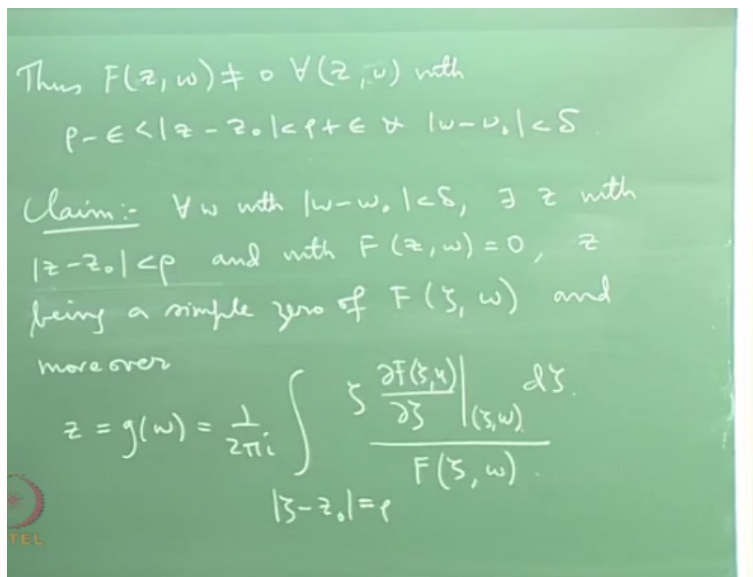 Thus F(z, w) ≠ 0 ∀ (z, w) with
ρ-ϵ < |z - z₀| < ρ+ϵ & |w - w₀| < δ.
Claim:- ∀ w with |w - w₀| < δ, ∃ z with
|z - z₀| < ρ and with F(z, w) = 0, z
being a simple zero of F(ζ, w) and
moreover
z = g(w) = 1/2πi ∫_{|ζ - z₀| = ρ} ζ ∂F(ζ, w)/∂ζ |_(ζ, w) dζ. / F(ζ, w).
TEL